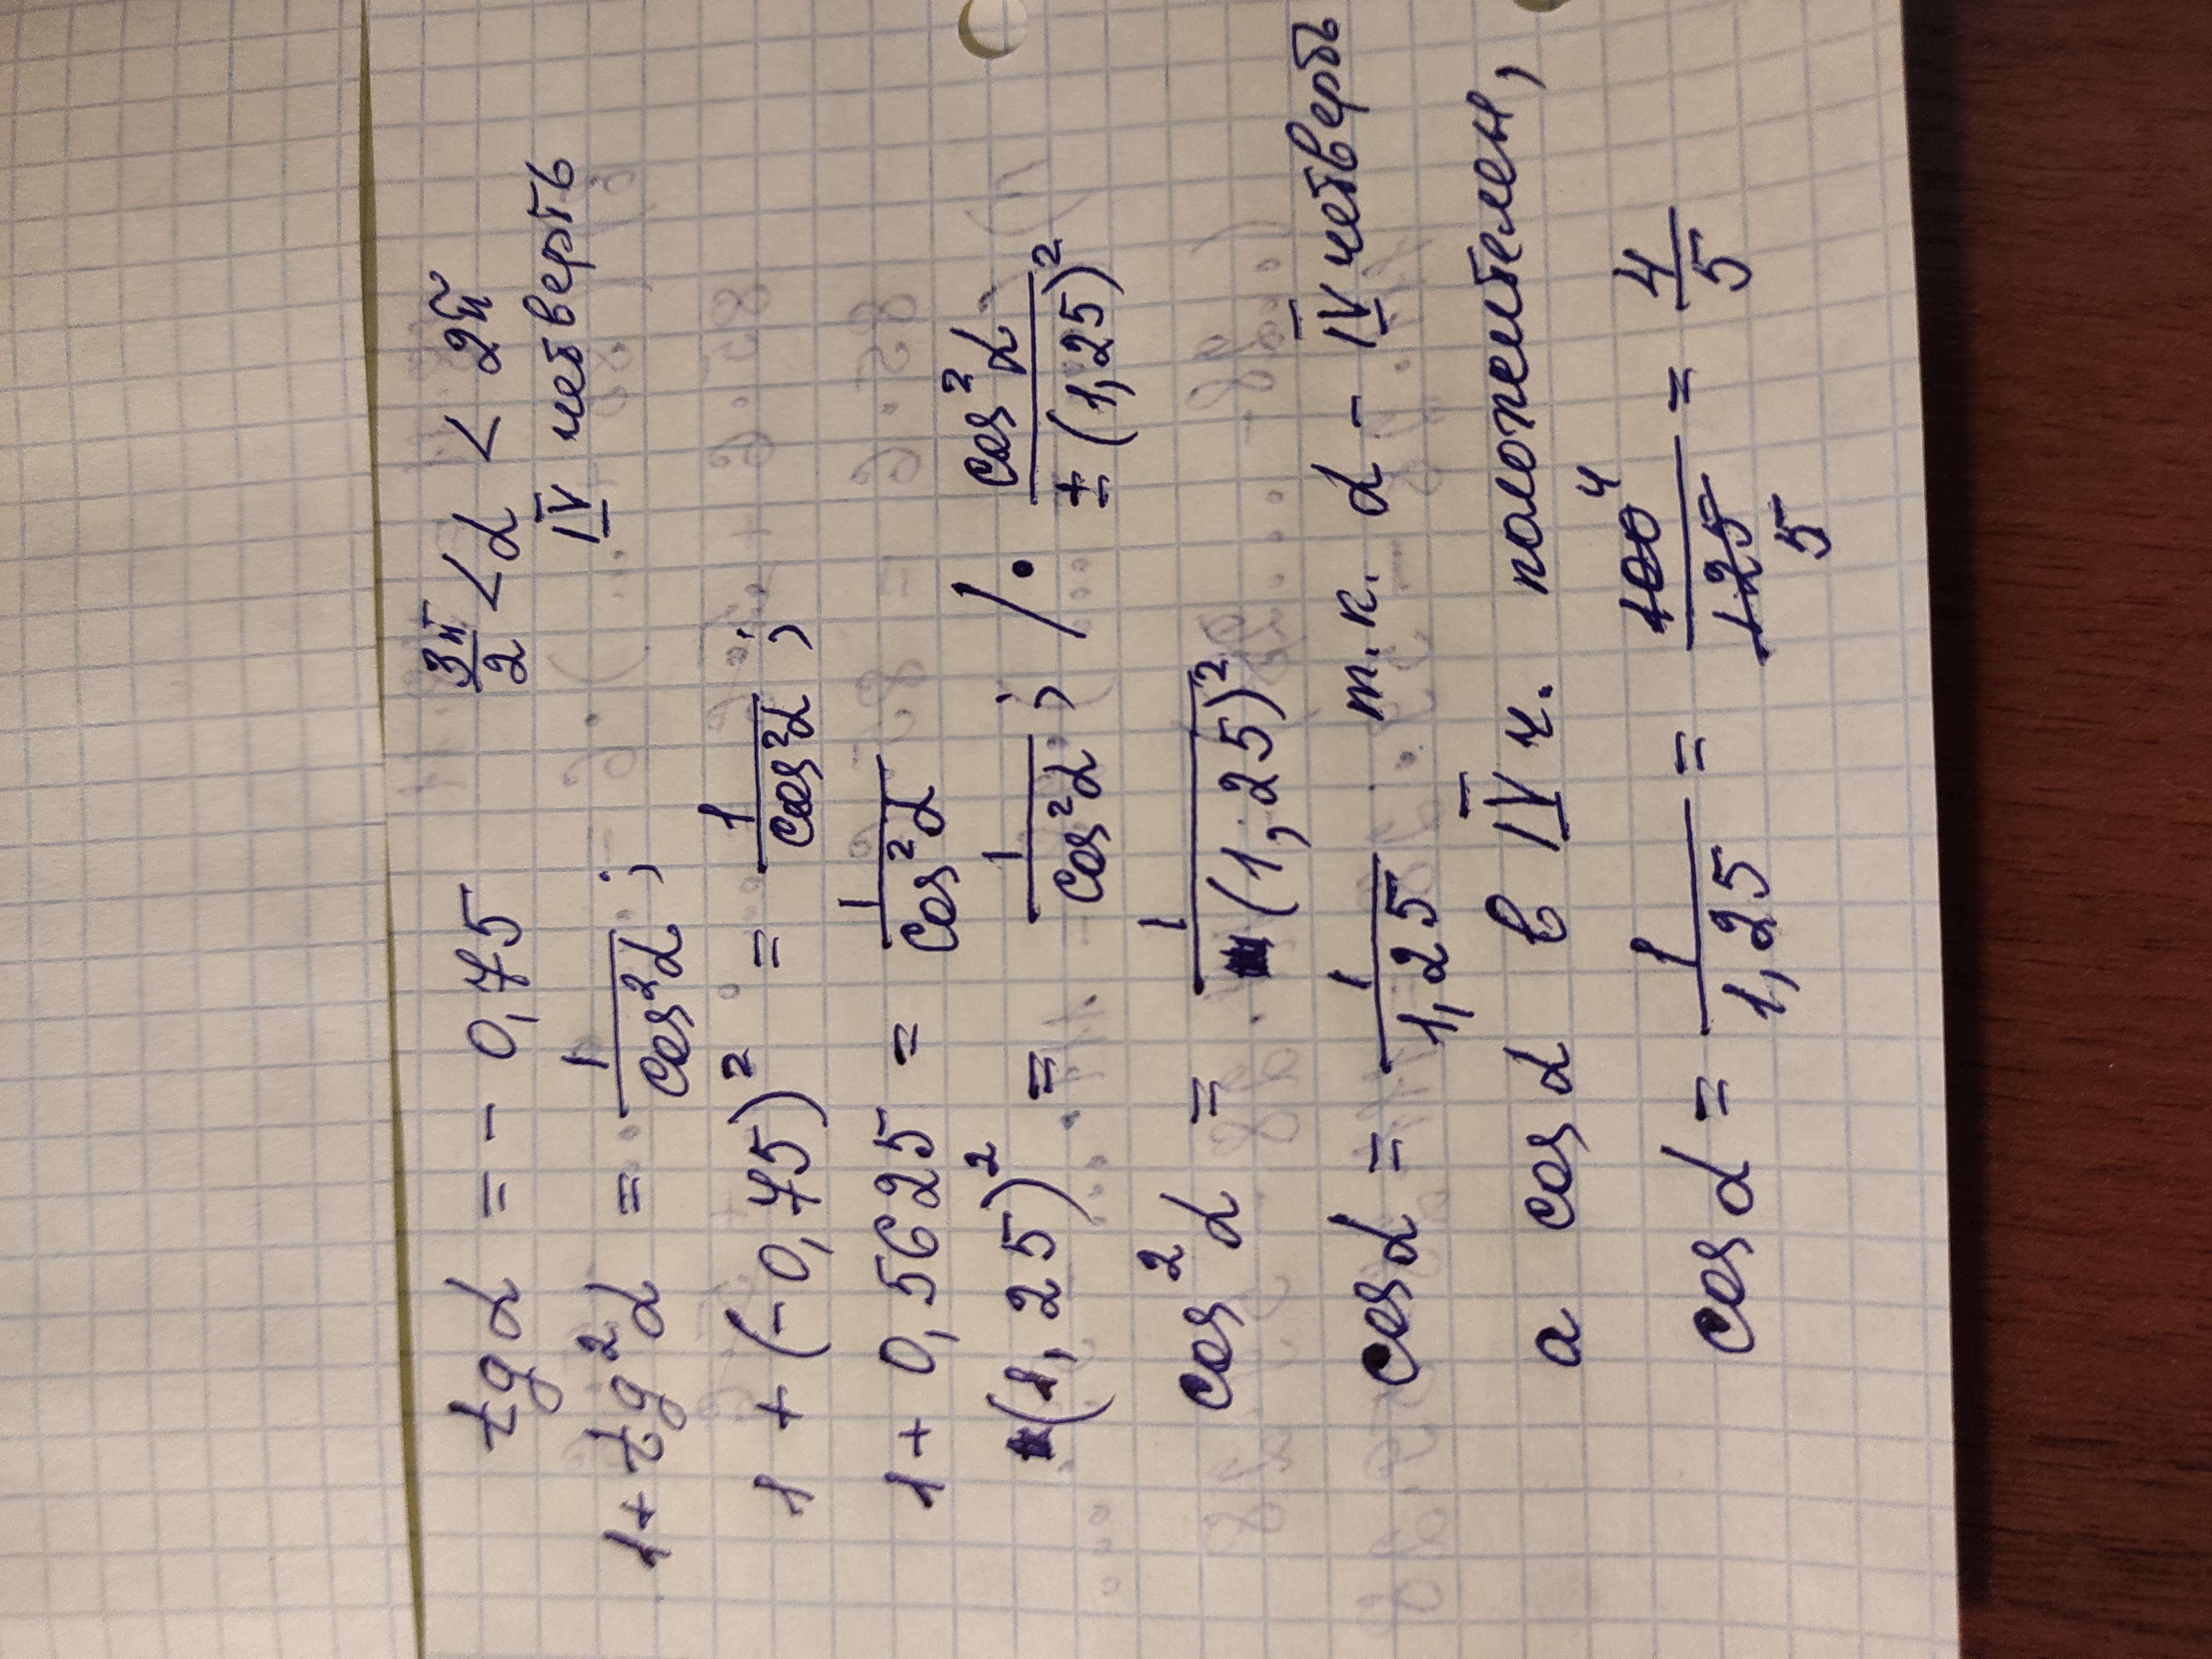 tg α = - 0,75 3π/2 < α < 2π
IV четверть
1 + tg²α = 1/cos²α ;
1 + (-0,75)² = 1/cos²α ;
1 + 0,5625 = 1/cos²α
(1,25)² = 1/cos²α ; / · cos²α/±(1,25)²
cos²α = 1/(1,25)²
cos α = 1/1,25 т.к. α - IV четверть
а cos α в IV ч. положителен,
cos α = 1/1,25 = 100 4/125 5 = 4/5